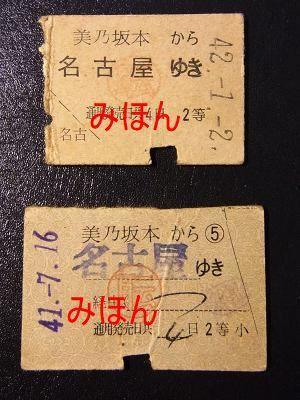 美乃坂本 から
名古屋 ゆき
通用発売日共4日 2等
みほん
名古
42.-1.-2.
美乃坂本 から ⑤
名古屋 ゆき
経
通用発売日共 4日2等 小
みほん
41.-7.16